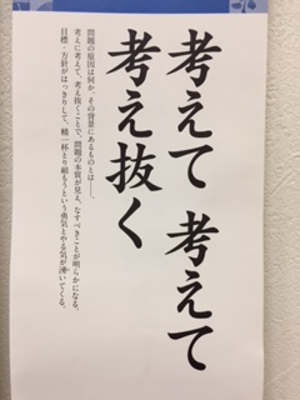 考えて 考えて
考え抜く
問題の原因は何か、その背景にあるものとは――。
考えに考えて、考え抜くことで、問題の本質が見え、なすべきことが明らかになる。
目標・方針がはっきりして、精一杯とり組もうという勇気とやる気が湧いてくる。